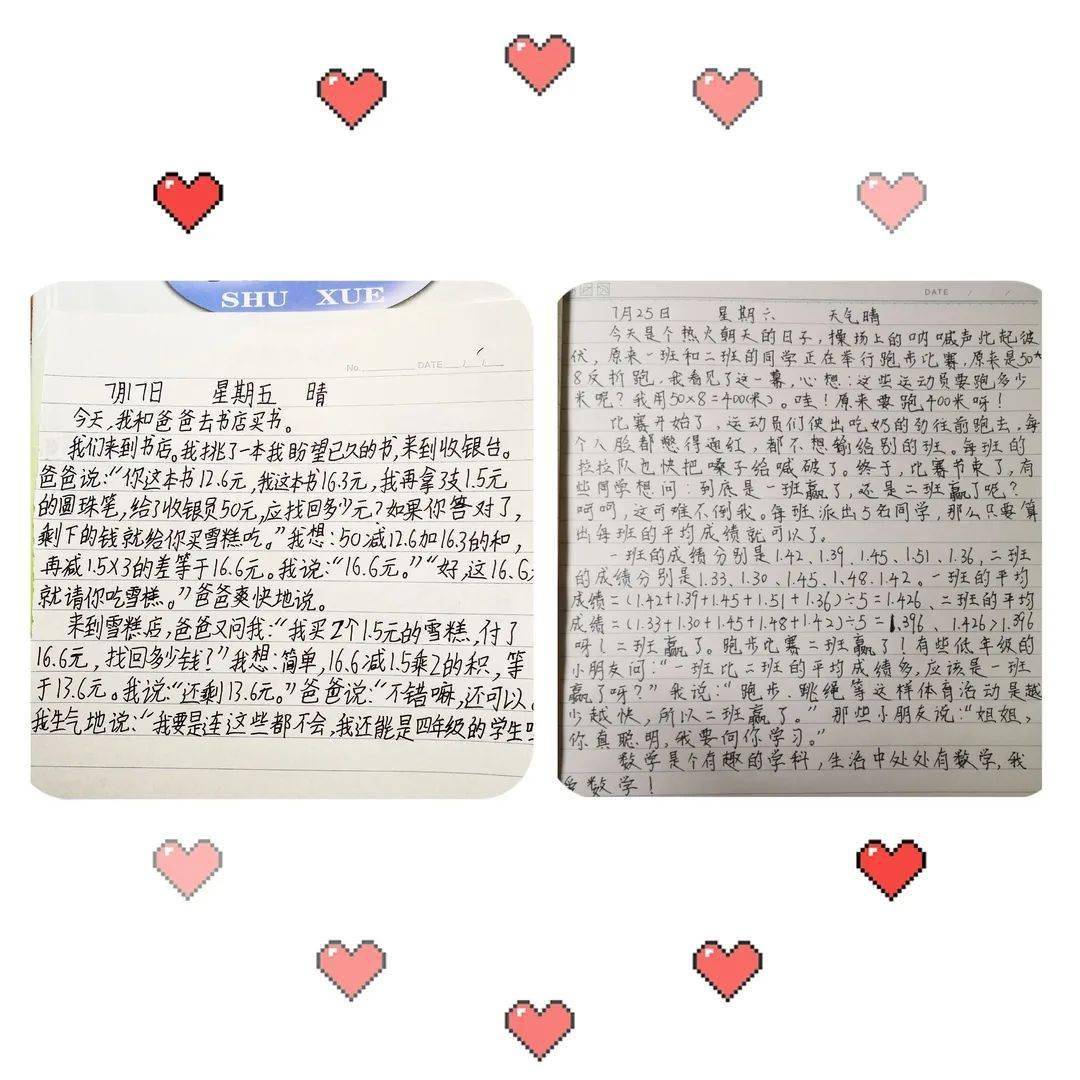 SHU XUE
No.
DATE
7月17日 星期五 晴
今天,我和爸爸去书店买书。
我们来到书店。我挑了一本我盼望已久的书,来到收银台。
爸爸说:“你这本书12.6元,我这本书16.3元,我再拿3支1.5元
的圆珠笔,给了收银员50元,应找回多少元?如果你答对了,
剩下的钱就给你买雪糕吃。”我想:50减12.6加16.3的和,
再减1.5×3的差等于16.6元。我说:“16.6元。”“好,这16.6
就请你吃雪糕。”爸爸爽快地说。
来到雪糕店,爸爸又问我:“我买2个1.5元的雪糕,付了
16.6元,找回多少钱?”我想:简单,16.6减1.5乘2的积,等
于13.6元。我说:“还剩13.6元。”爸爸说:“不错嘛,还可以
我生气地说:“我要是连这些都不会,我还能是四年级的学生
DATE
7月25日 星期六 天气晴
今天是个热火朝天的日子,操场上的呐喊声此起彼
伏,原来一班和二班的同学正在举行跑步比赛,原来是50*
8反折跑,我看见了这一幕,心想:这些运动员要跑多少
米呢?我用50×8=400(米)。哇!原来要跑400米呀!
比赛开始了,运动员们使出吃奶的劲往前跑去,每
个人脸都憋得通红,都不想输给别的班。每班的
拉拉队也快把嗓子给喊破了。终于,比赛节束了,有
些同学想问:到底是一班赢了,还是二班赢了呢?
呵呵,这可难不倒我。每班派出5名同学,那么只要算
出每班的平均成绩就可以了。
一班的成绩分别是1.42、1.39、1.45、1.51、1.36,二班
的成绩分别是1.33、1.30、1.45、1.48、1.42。一班的平均
成绩=(1.42+1.39+1.45+1.51+1.36)÷5=1.426、二班的平均
成绩=(1.33+1.30+1.45+1.48+1.42)÷5=1.396、1.426>1.396
呀!二班赢了。跑步比赛二班赢了!有些低年级的
小朋友问:“一班比二班的平均成绩多,应该是一班
赢了呀?”我说:“跑步、跳绳等这样体育活动是越
少越快,所以二班赢了。”那些小朋友说:“姐姐,
你真聪明,我要向你学习。”
数学是个有趣的学科,生活中处处有数学,我
数学!